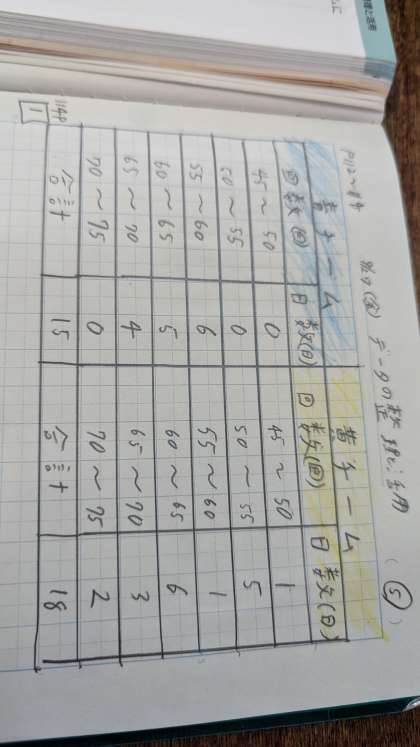 データの整理と活用 (5)
青チーム 黄チーム
回数(回) 日数(日) 回数(回) 日数(日)
45〜50 0 45〜50 1
50〜55 0 50〜55 5
55〜60 6 55〜60 1
60〜65 5 60〜65 6
65〜70 4 65〜70 3
70〜75 0 70〜75 2
合計 15 合計 18
114P
1